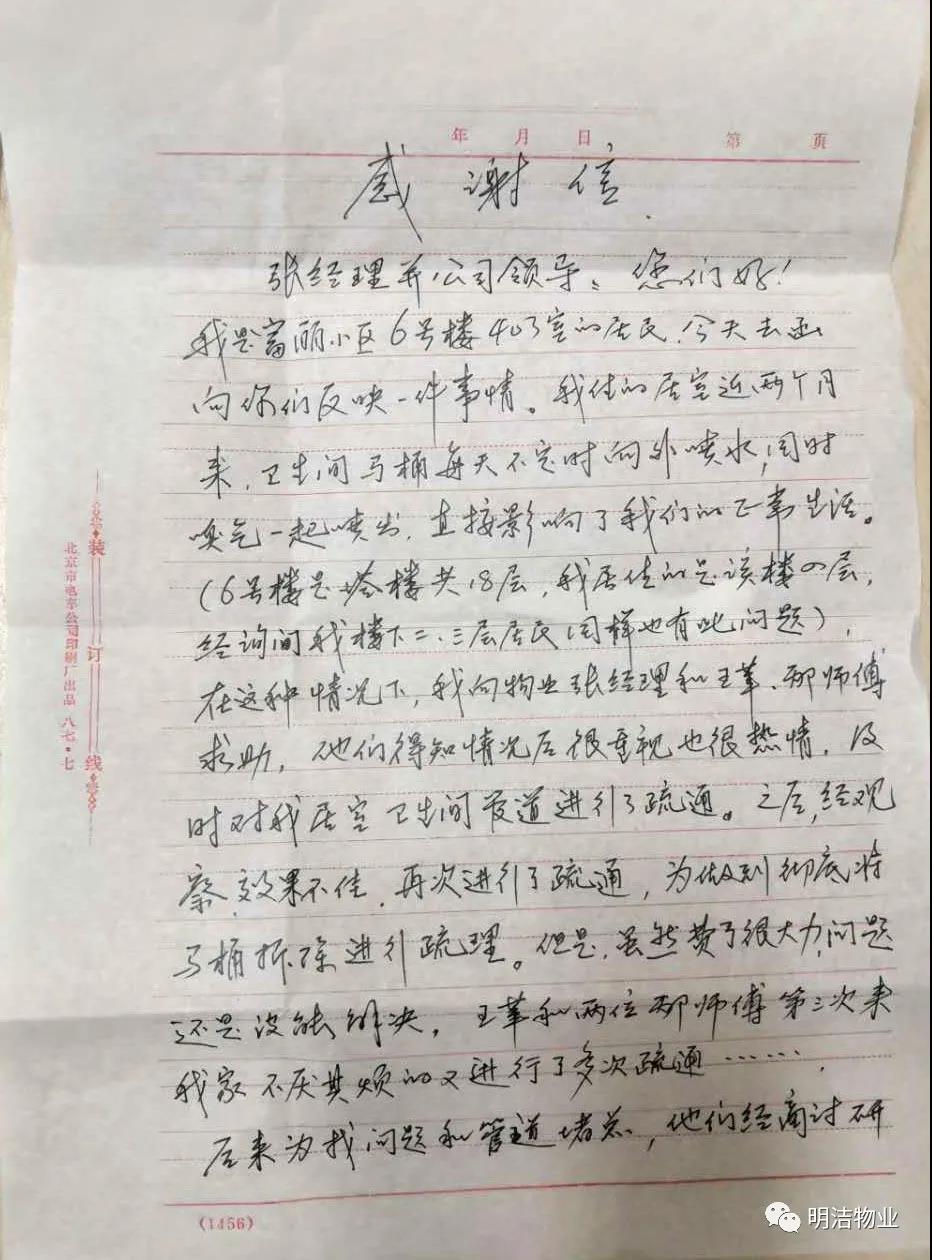 年 月 日 第 页
感谢信
张经理并公司领导：您们好！
我是富丽小区6号楼403室的居民，今天去函
向你们反映一件事情。我住的居室近两个月
来，卫生间马桶每天不定时向外喷水，同时
臭气一起喷出，直接影响了我们的正常生活。
（6号楼是塔楼共18层，我居住的是该楼四层，
经询问我楼下二、三层居民同样也有此问题），
在这种情况下，我向物业张经理和王革、邢师傅
求助，他们得知情况后很重视也很热情，及
时对我居室卫生间管道进行了疏通。之后，经观
察，效果不佳，再次进行了疏通，为做到彻底将
马桶拆除进行疏理。但是，虽然费了很大力，问题
还是没能解决，王革和两位邢师傅第三次来
我家不厌其烦的又进行了多次疏通……，
后来为找问题和管道堵点，他们经商讨研
装订线
北京市电车公司印刷厂出品 八七·七
(1456)
明洁物业